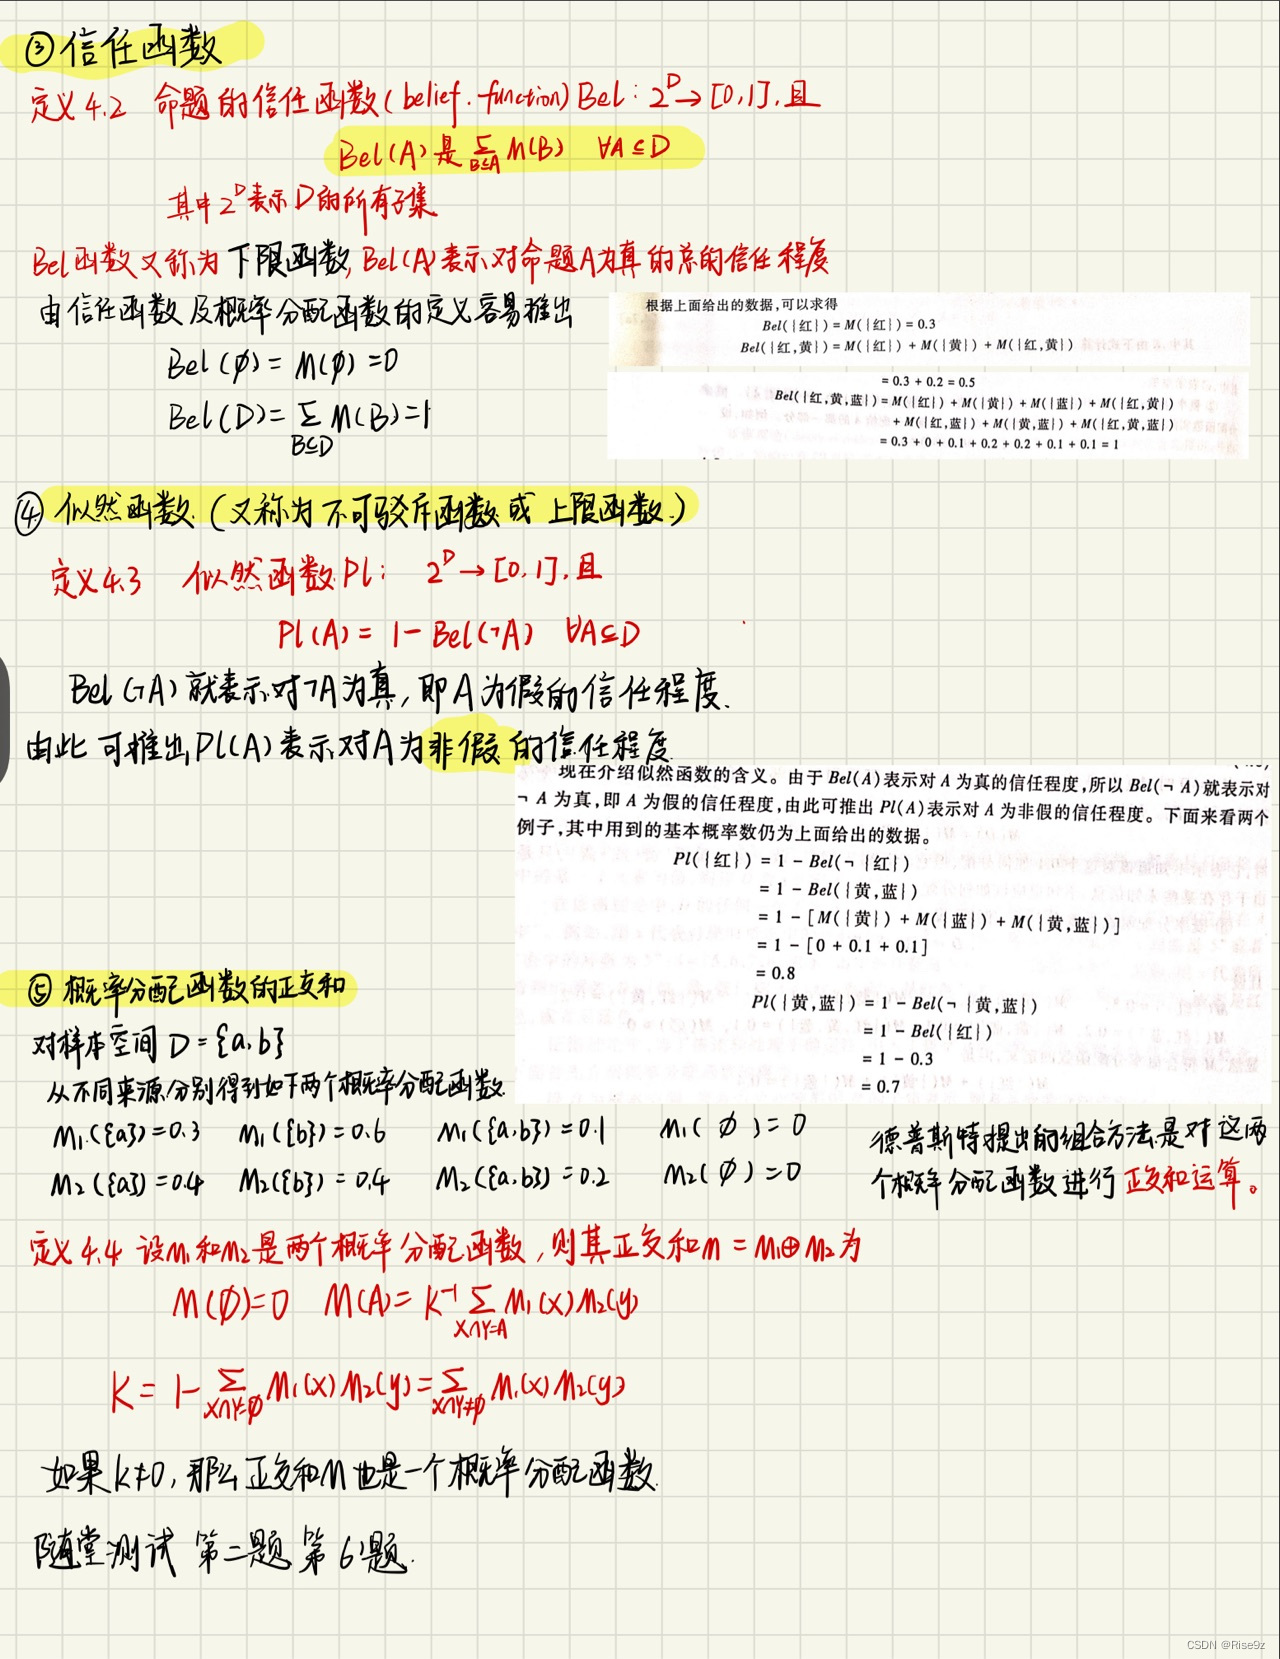 ③信任函数
定义4.2 命题的信任函数(belief function) Bel: 2^D→[0,1],且
Bel(A)是 Σ_{B⊆A} M(B) ∀A⊆D
其中2^D表示D的所有子集
Bel函数又称为下限函数,Bel(A)表示对命题A为真的总的信任程度
由信任函数及概率分配函数的定义容易推出
Bel(∅)=M(∅)=0
Bel(D)=Σ_{B⊆D} M(B)=1
根据上面给出的数据,可以求得
Bel({红})=M({红})=0.3
Bel({红,黄})=M({红})+M({黄})+M({红,黄})
=0.3+0.2=0.5
Bel({红,黄,蓝})=M({红})+M({黄})+M({蓝})+M({红,黄})
+M({红,蓝})+M({黄,蓝})+M({红,黄,蓝})
=0.3+0+0.1+0.2+0.2+0.1+0.1=1
④似然函数.(又称为不可驳斥函数或上限函数.)
定义4.3 似然函数Pl: 2^D→[0,1],且
Pl(A)=1-Bel(¬A) ∀A⊆D
Bel(¬A)就表示对¬A为真,即A为假的信任程度.
由此可推出Pl(A)表示对A为非假的信任程度.
现在介绍似然函数的含义。由于Bel(A)表示对A为真的信任程度,所以Bel(¬A)就表示对
¬A为真,即A为假的信任程度,由此可推出Pl(A)表示对A为非假的信任程度。下面来看两个
例子,其中用到的基本概率数仍为上面给出的数据。
Pl({红})=1-Bel(¬{红})
=1-Bel({黄,蓝})
=1-[M({黄})+M({蓝})+M({黄,蓝})]
=1-[0+0.1+0.1]
=0.8
Pl({黄,蓝})=1-Bel(¬{黄,蓝})
=1-Bel({红})
=1-0.3
=0.7
⑤概率分配函数的正交和
对样本空间D={a,b}
从不同来源分别得到如下两个概率分配函数
M₁({a})=0.3 M₁({b})=0.6 M₁({a,b})=0.1 M₁(∅)=0
M₂({a})=0.4 M₂({b})=0.4 M₂({a,b})=0.2 M₂(∅)=0
德普斯特提出的组合方法是对这两
个概率分配函数进行正交和运算。
定义4.4 设M₁和M₂是两个概率分配函数,则其正交和M=M₁⊕M₂为
M(∅)=0 M(A)=K⁻¹ Σ_{X∩Y=A} M₁(x)M₂(y)
K=1-Σ_{X∩Y=∅} M₁(x)M₂(y)=Σ_{X∩Y≠∅} M₁(x)M₂(y)
如果K≠0,那么正交和M也是一个概率分配函数.
随堂测试 第二题 第6题.
CSDN @Rise9z